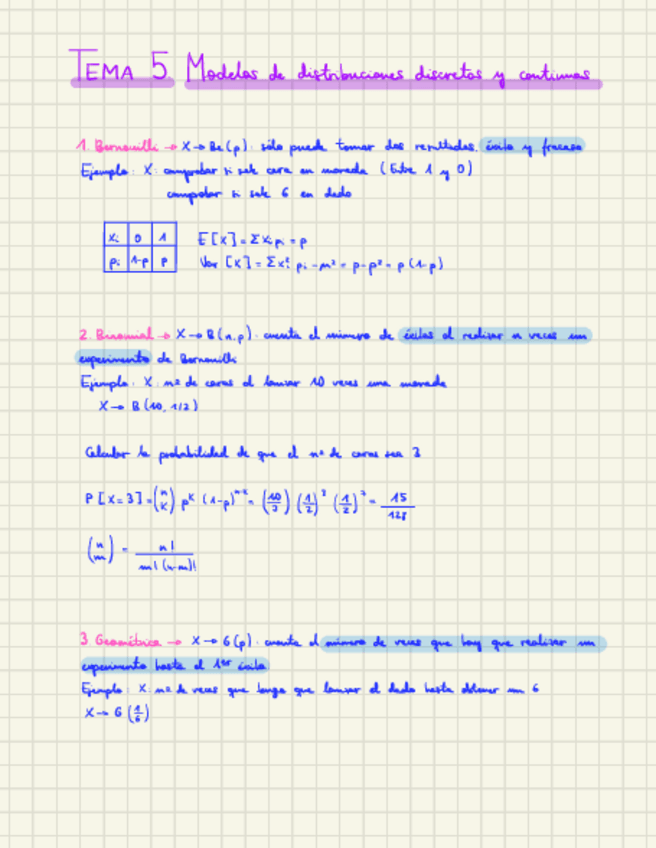 TEMA 5 Modelos de distribuciones discretas y continuas
1. Bernouilli → X → Be(p): sólo puede tomar dos resultados, éxito y fracaso
Ejemplo: X: comprobar si sale cara en moneda (Entre 1 y 0)
comprobar si sale 6 en dado
xi 0 1 E[X] = Σxipi = p
pi 1-p p Var [X] = Σxi² pi - μ² = p - p² = p (1-p)
2. Binomial → X → B(n,p): cuenta el número de éxitos al realizar n veces un
experimento de Bernouilli
Ejemplo: X: nº de caras al lanzar 10 veces una moneda
X → B (10, 1/2)
Calcular la probabilidad de que el nº de caras sea 3
P[X=3] = (n k) p^k (1-p)^n-k = (10 3) (1/2)³ (1/2)⁷ = 15/128
(n m) = n! / m! (n-m)!
3. Geométrica → X → G(p): cuenta el número de veces que hay que realizar un
experimento hasta el 1er éxito
Ejemplo: X: nº de veces que tengo que lanzar el dado hasta obtener un 6
X → G (1/6)